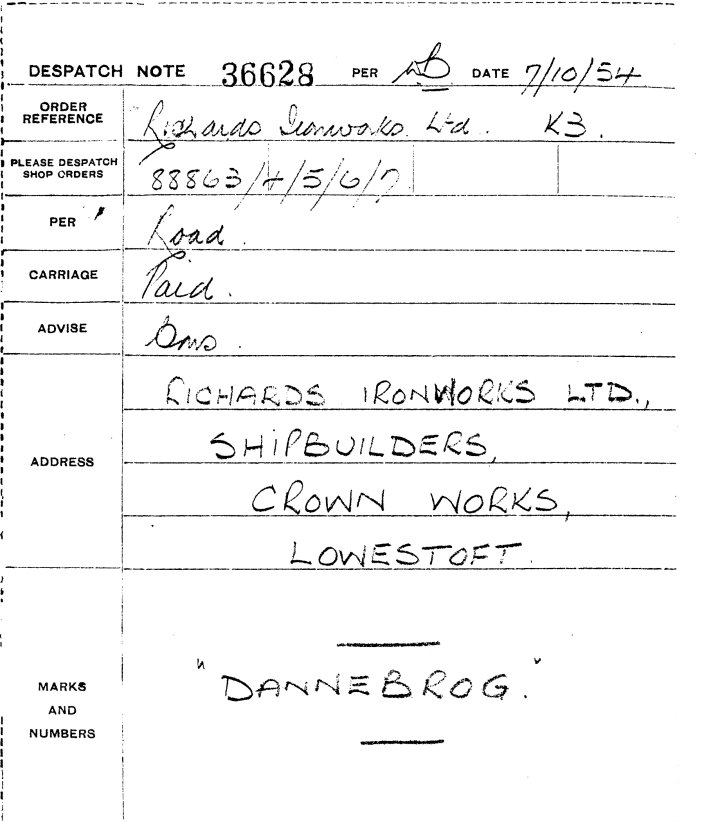 DESPATCH NOTE 36628 PER DATE 7/10/54
ORDER REFERENCE Richards Ironworks. Ltd. K3.
PLEASE DESPATCH SHOP ORDERS 88863/4/5/6/7
PER Road.
CARRIAGE Paid.
ADVISE
ADDRESS RICHARDS IRONWORKS LTD.,
SHIPBUILDERS,
CROWN WORKS,
LOWESTOFT.
MARKS AND NUMBERS "DANNEBROG."